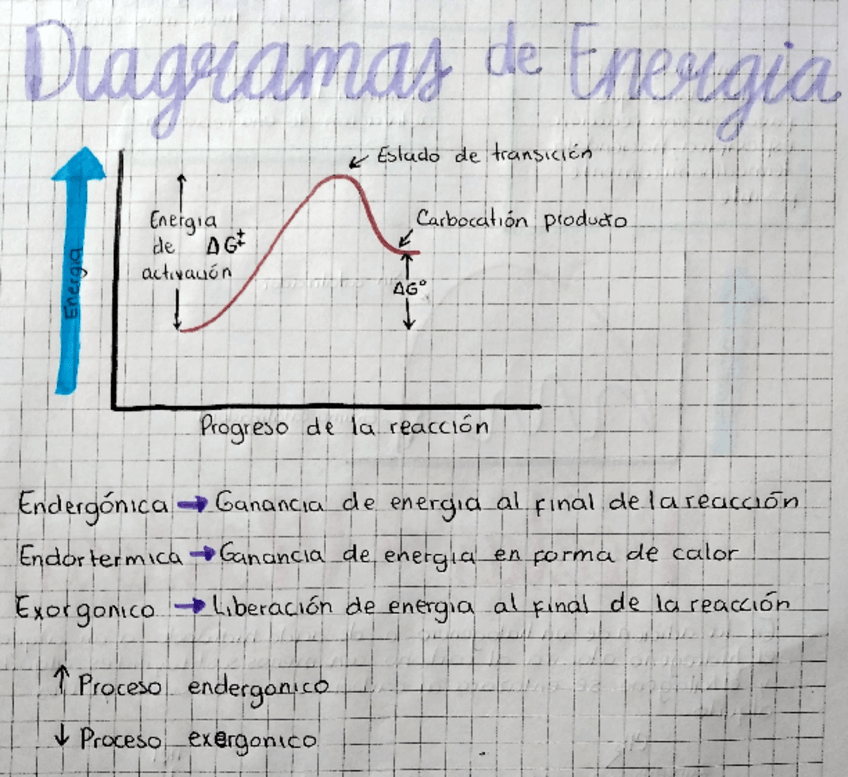 Diagramas de Energia
Estado de transición
Energia
de ΔG‡
activación
Carbocatión producto
ΔG°
Energia
Progreso de la reacción
Endergónica → Ganancia de energia al final de la reacción
Endortermica → Ganancia de energia en forma de calor
Exorgonico → Liberación de energia al final de la reacción
↑ Proceso endergonico
↓ Proceso exergonico